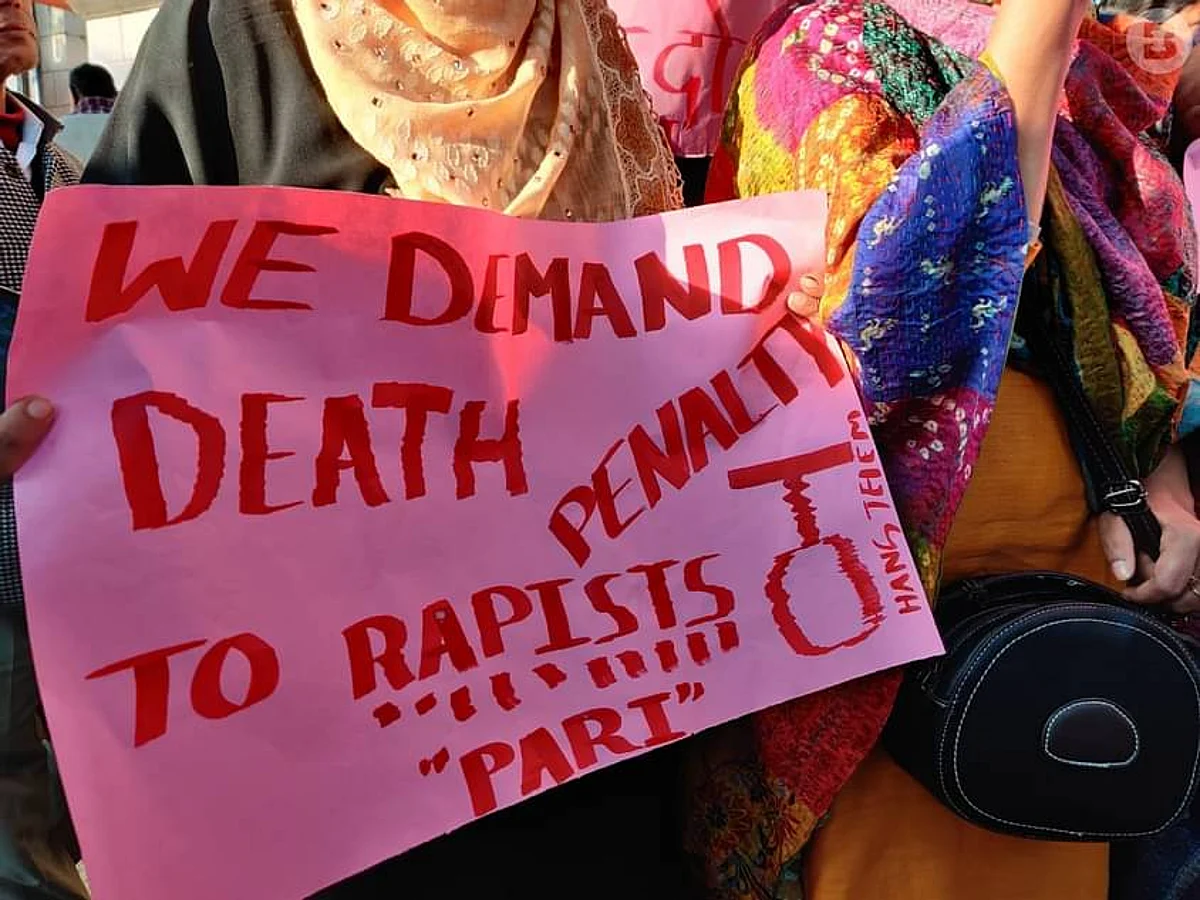 WE DEMAND
DEATH PENALTY
TO RAPISTS
"PARI"
HANG THEM